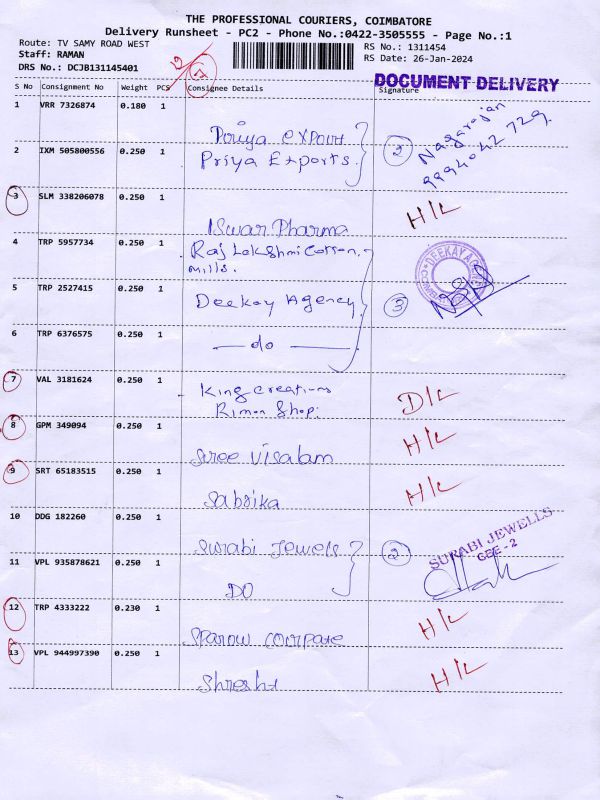 THE PROFESSIONAL COURIERS, COIMBATORE
Delivery Runsheet - PC2 - Phone No.:0422-3505555 - Page No.:1
Route: TV SAMY ROAD WEST
RS No.: 1311454
Staff: RAMAN
RS Date: 26-Jan-2024
DRS No.: DCJB131145401
DOCUMENT DELIVERY
S No Consignment No Weight PCS Consignee Details Signature
1 VRR 7326874 0.180 1 Priya export
2 IXM 505800556 0.250 1 Priya Exports. 2 Nagarajan
3 SLM 338206078 0.250 1 Iswar Pharma H/L
4 TRP 5957734 0.250 1 Raj Lakshmi Cotton
mills.
5 TRP 2527415 0.250 1 Deekay Agency 3 DEEKAY
6 TRP 6376575 1 0.250 — do —
7 VAL 3181624 0.250 1 King creations
Rimon Shop. D/L
8 GPM 349094 0.250 1 Sree Visalam H/L
9 SRT 65183515 0.250 1 Sabrika H/L
10 DDG 182260 0.250 1 Surabi Jewels 2 SURABI JEWELLS
CBE - 2
11 VPL 935878621 0.250 1 DO
12 TRP 4333222 0.230 1 H/L
13 VPL 944997390 0.250 1 H/L